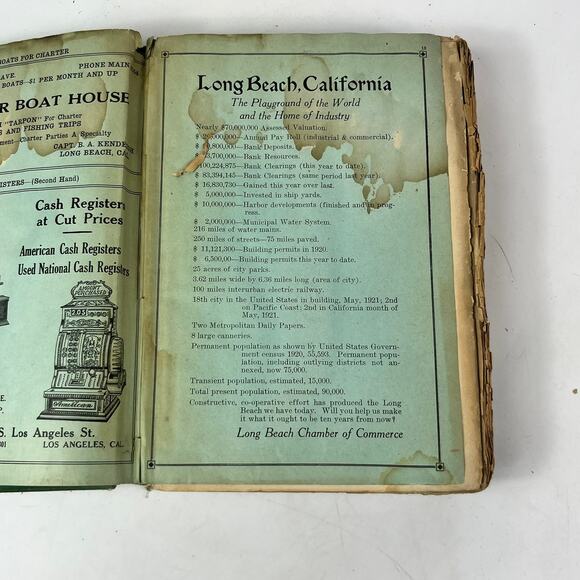 BOATS FOR CHARTER
AVE PHONE MAIN
BOATS—$1 PER MONTH AND UP
R BOAT HOUSE
"TARPON" For Charter
S AND FISHING TRIPS
ment—Charter Parties A Specialty
CAPT. B. A. KENDE
LONG BEACH, CAL.
ISTERS—(Second Hand)
Cash Registers
at Cut Prices
American Cash Registers
Used National Cash Registers
AMOUNT
PURCHASED
American
E.
P.
S. Los Angeles St.
301 LOS ANGELES, CAL.
Long Beach, California
The Playground of the World
and the Home of Industry
Nearly $70,000,000 Assessed Valuation.
$ 26,000,000—Annual Pay Roll (industrial & commercial).
9,800,000—Bank Deposits.
3,700,000—Bank Resources.
100,224,875—Bank Clearings (this year to date).
$ 83,394,145—Bank Clearings (same period last year).
$ 16,830,730—Gained this year over last.
$ 5,000,000—Invested in ship yards.
$ 10,000,000—Harbor developments (finished and in prog-
ress.
$ 2,000,000—Municipal Water System.
216 miles of water mains.
250 miles of streets—75 miles paved.
$ 11,121,300—Building permits in 1920.
$ 6,500,00—Building permits this year to date.
25 acres of city parks.
3.62 miles wide by 6.36 miles long (area of city).
100 miles interurban electric railway.
18th city in the United States in building, May, 1921; 2nd
on Pacific Coast; 2nd in California month of
May, 1921.
Two Metropolitan Daily Papers.
8 large canneries.
Permanent population as shown by United States Govern-
ment census 1920, 55,593. Permanent popu-
lation, including outlying districts not an-
nexed, now 75,000.
Transient population, estimated, 15,000.
Total present population, estimated, 90,000.
Constructive, co-operative effort has produced the Long
Beach we have today. Will you help us make
it what it ought to be ten years from now?
Long Beach Chamber of Commerce